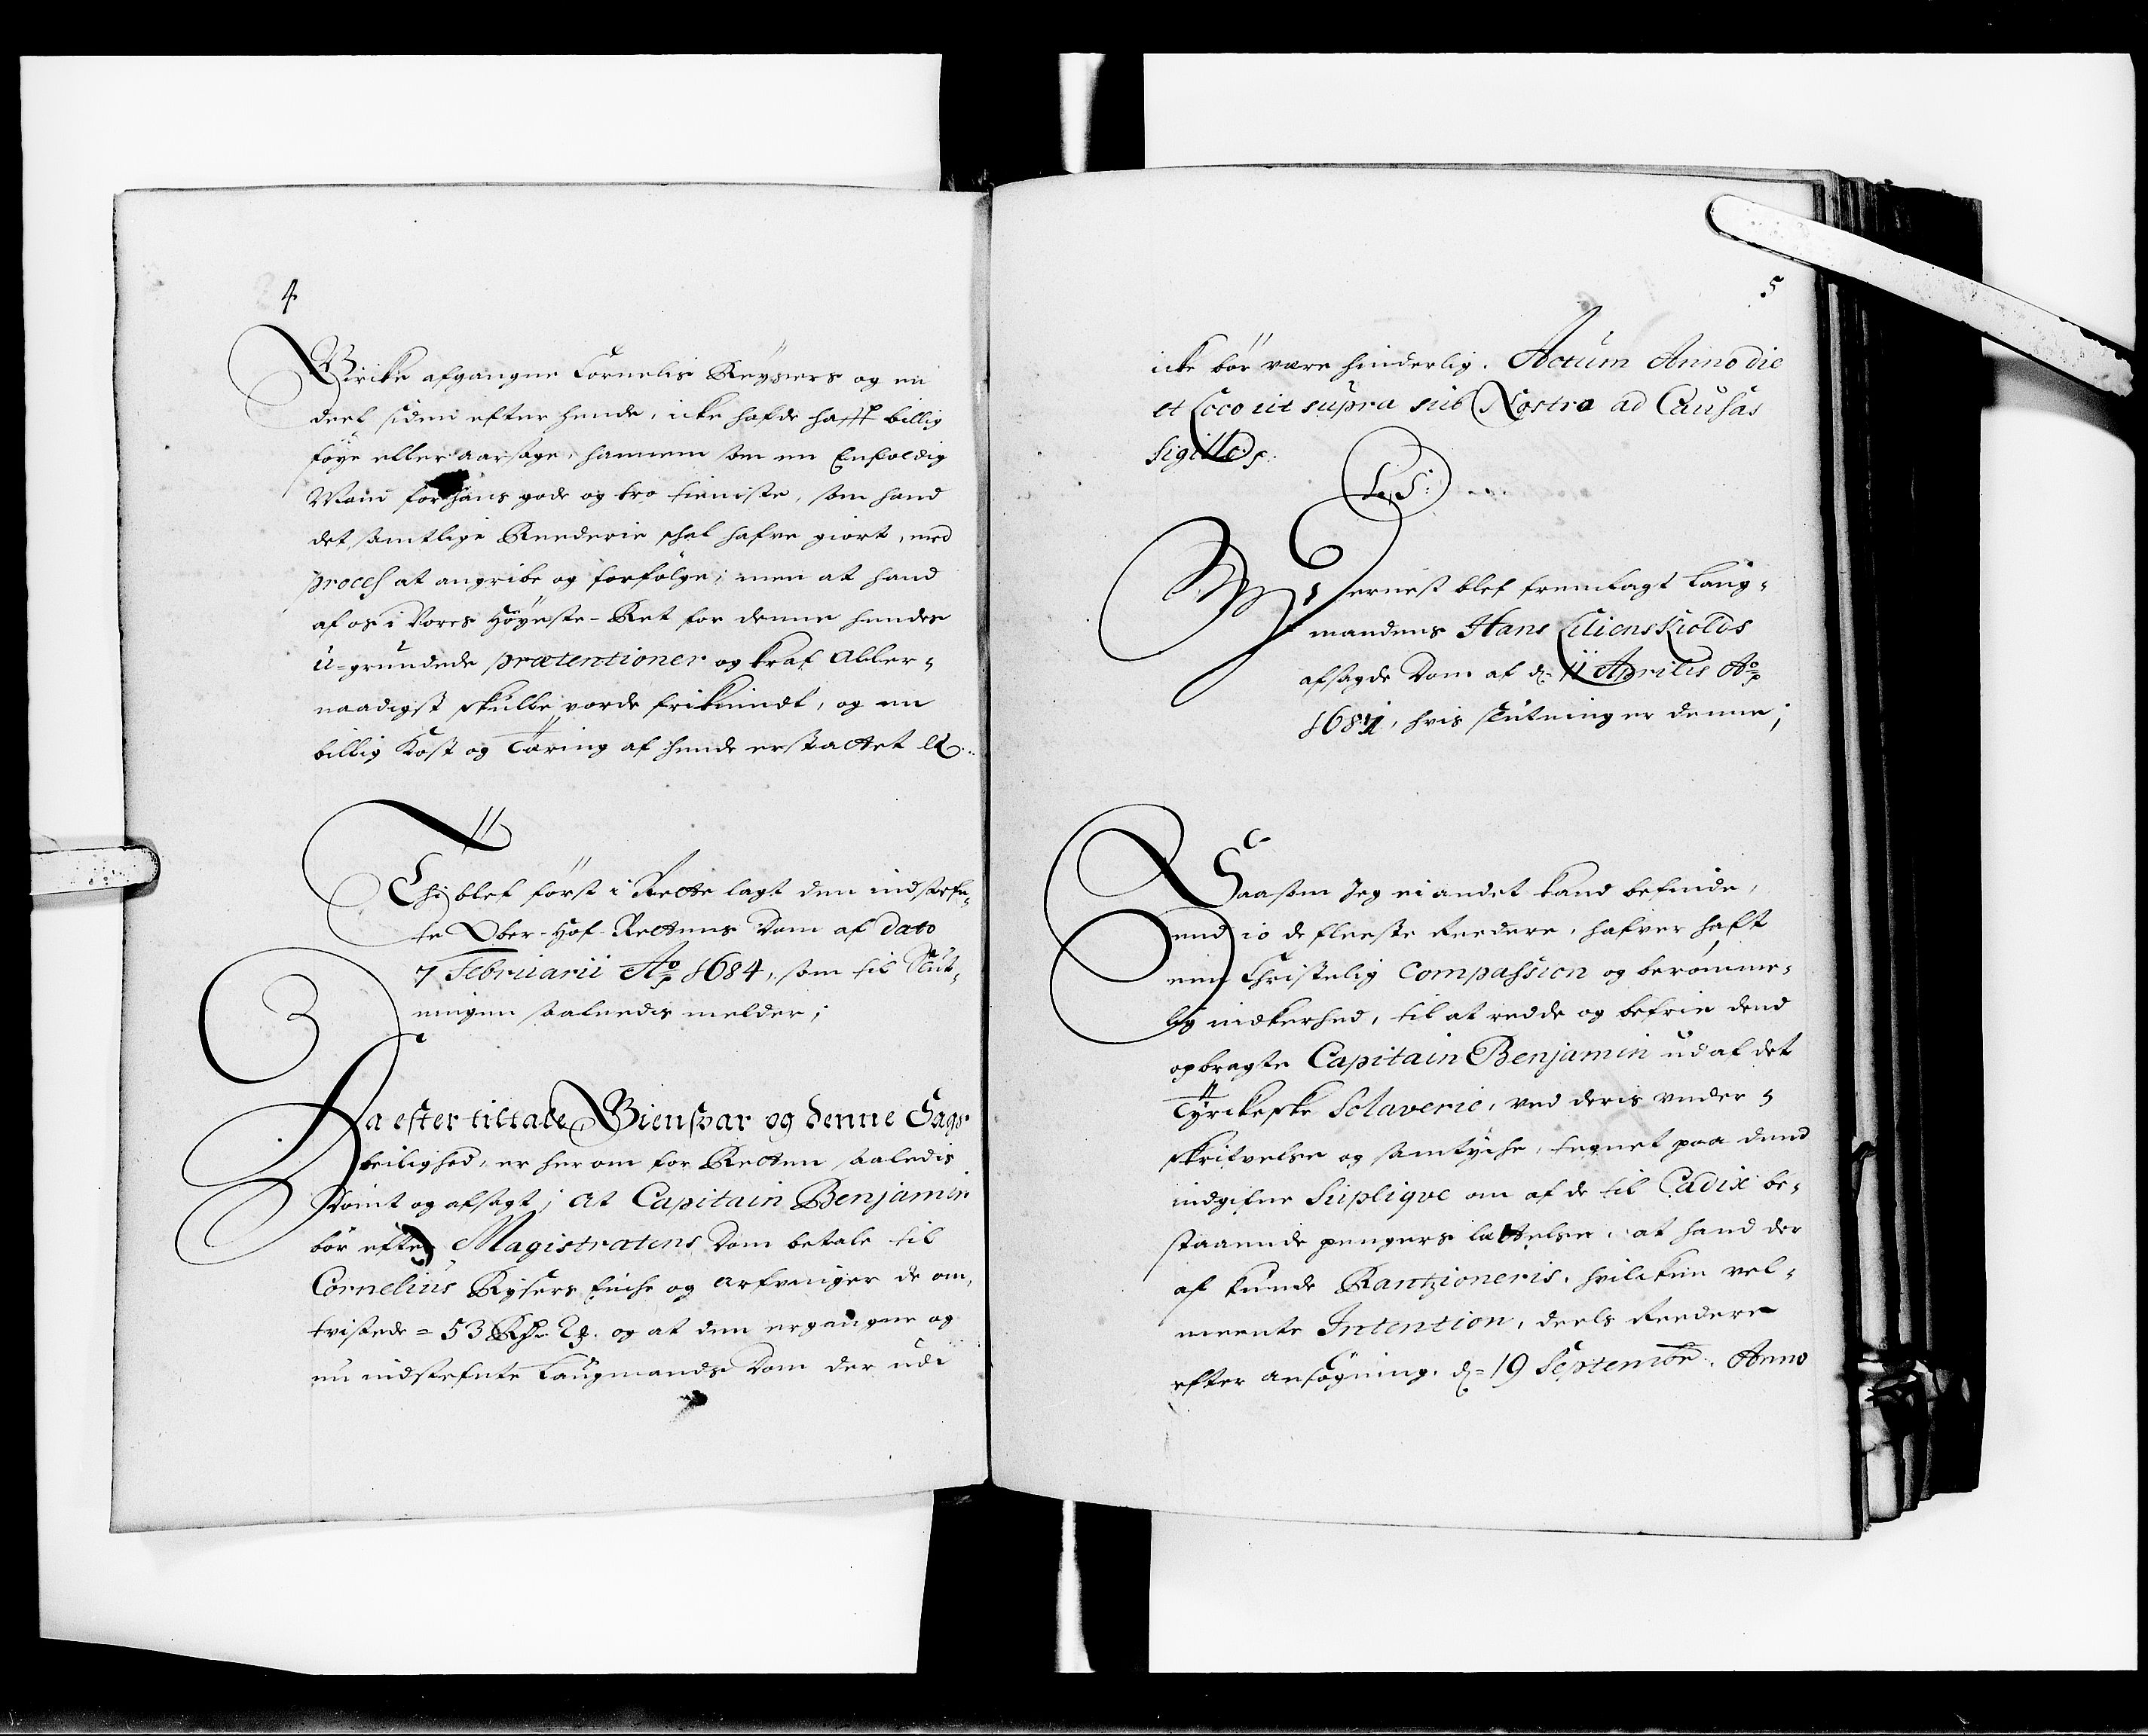 4
Birike afgangne Cornelis Reÿsers og en
deel siden efter hende, icke hafde hafft billig
föye eller aarsage, hannem som en Enfoldig
Mand for hans gode og tro tieniste, som hand
det samtlige Reederie schal hafve giort, med
process at angribe og forfölge; men at hand
af os i Vores Höÿeste-Ret for denne hendes
ü-grundede prætentioner og kraf Aller-
naadigst skulle vorde frikiendt, og en
billig Kost og Tæring af hende erstattet &c.
Thj blef först i Rette lagt den indstefn-
te Ober-Hof-Rettens Dom af dato
7 Februarii Ao 1684, som til Slut-
ningen saaledis melder;
Da efter tiltale Giensvar og denne Sags
beilighed, er her om for Retten saaledis
Dömt og afsagt; At Capitain Benjamin
bör efter Magistratens Dom betale til
Cornelius Rÿsers Enche og Arfvinger de om-
tvistede = 53 Rdr 2 og at den ergangne og
nu indstefnte Laugmands Dom der udi
5
icke bör være hinderlig. Actum Anno die
et Loco ut supra sub Nostro ad Causas
Sigillo
L. S:
Dernest blef fremlagt Laug-
mandens Hans Lilienskiolds
afsagde Dom af d. 11 Aprilis Ao
1684, hvis slutning er denne;
Saasom Jeg ei andet kand befinde,
end io de fleeste Reedere, hafver haft
een Christelig Compassion og berömme-
lig indkerhed, til at redde og befrie dend
opbragte Capitain Benjamin ud af det
Tÿrckeske Sclaverie, ved deris under-
skrifvelse og samtÿche, tegnet paa dend
indgifne Supliqve om af de til Cadix be-
staaende pengers lættelse, at hand der
af kunde Rantzioneris, hvilcken vel-
meente Intention, deels Reedere
efter ansögning, d. 19 Septembr. Anno